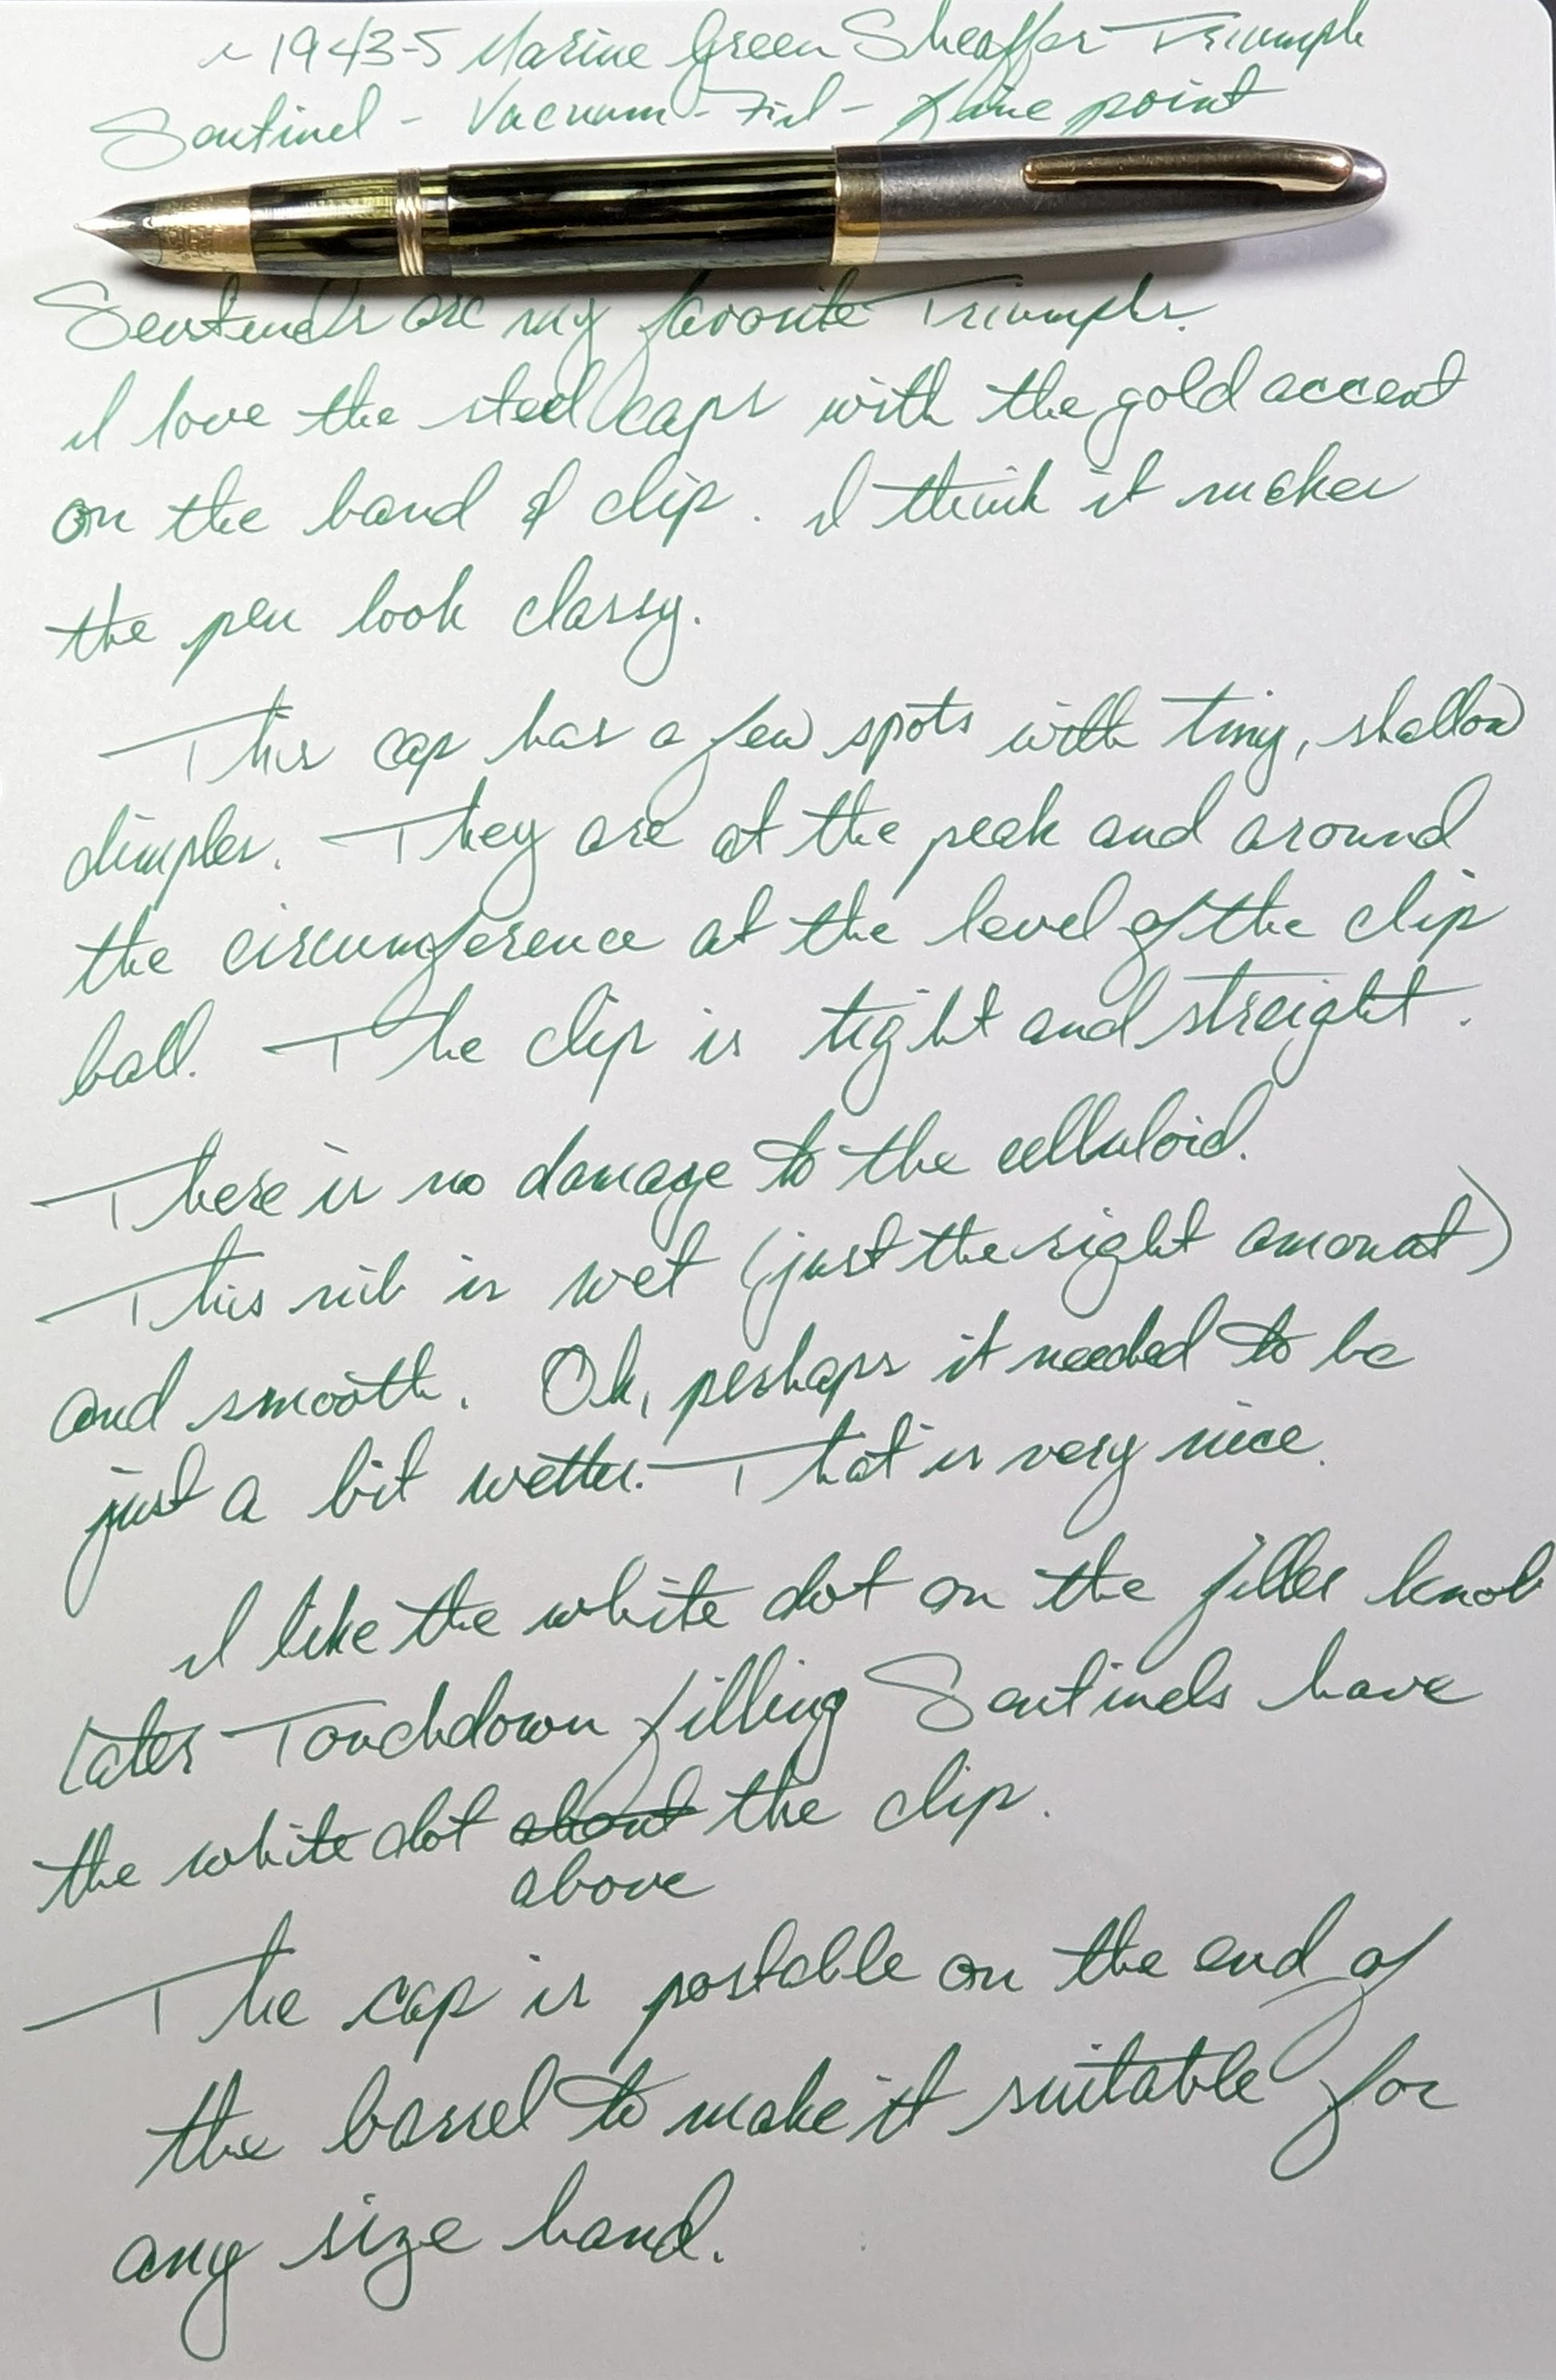 ~ 1943-5 Marine Green Sheaffer Triumph
Sentinel - Vacuum-Fil - fine point
Sentinels are my favorite Triumphs.
I love the steel caps with the gold accent
on the band & clip. I think it makes
the pen look classy.
This cap has a few spots with tiny, shallow
dimples. They are at the peak and around
the circumference at the level of the clip
ball. The clip is tight and straight.
There is no damage to the celluloid.
This nib is wet (just the right amount)
and smooth. Ok, perhaps it needed to be
just a bit wetter. That is very nice.
I like the white dot on the filler knob
Later Touchdown filling Sentinels have
the white dot about the clip.
above
The cap is postable on the end of
the barrel to make it suitable for
any size hand.